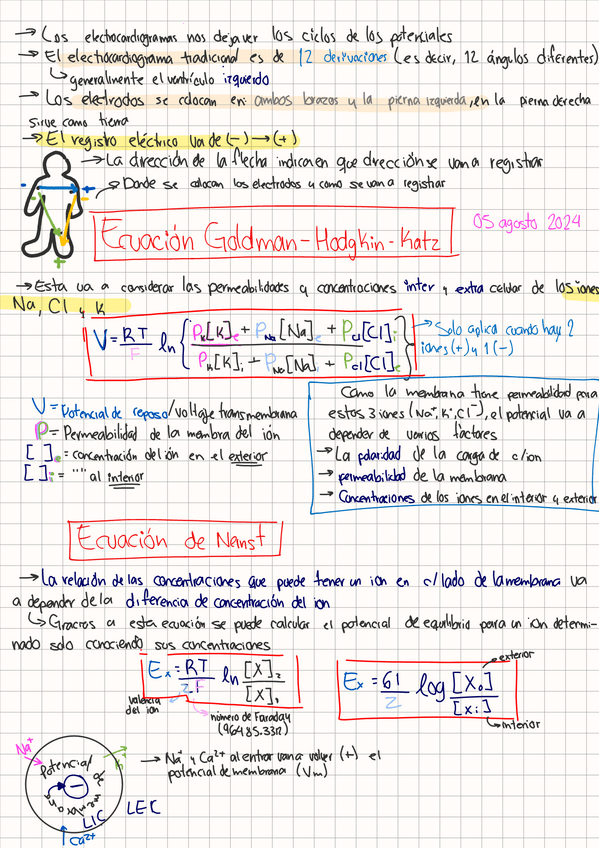 → Los electrocardiogramas nos dejan ver los ciclos de los potenciales
→ El electrocardiograma tradicional es de 12 derivaciones (es decir, 12 ángulos diferentes)
↳ generalmente el ventrículo izquierdo
→ Los electrodos se colocan en: ambos brazos y la pierna izquierda, en la pierna derecha
sirve como tierra
→ El registro eléctrico va de (-) → (+)
→ La dirección de la flecha indica en que dirección se van a registrar
→ Donde se colocan los electrodos y como se van a registrar
- +
- -
+ +
Ecuación Goldman-Hodgkin-Katz
05 agosto 2024
→ Esta va a considerar las permeabilidades y concentraciones inter y extra celular de los iones
Na, Cl y K
V = RT/F ln { (P_K[K]_e + P_Na[Na]_e + P_Cl[Cl]_i) / (P_K[K]_i + P_Na[Na]_i + P_Cl[Cl]_e) }
→ Solo aplica cuando hay 2
iones (+) y 1 (-)
V = Potencial de reposo/voltaje transmembrana
P = Permeabilidad de la membra del ión
[ ]_e = concentración del ión en el exterior
[ ]_i = "" al interior
Como la membrana tiene permeabilidad para
estos 3 iones (Na⁺, K⁺, Cl⁻), el potencial va a
depender de varios factores
→ La polaridad de la carga de c/ion
→ permeabilidad de la membrana
→ Concentraciones de los iones en el interior y exterior
Ecuación de Nanst
→ La relación de las concentraciones que puede tener un ion en c/lado de la membrana va
a depender de la diferencia de concentración del ion
↳ Gracias a esta ecuación se puede calcular el potencial de equilibrio para un ion determi-
nado solo conociendo sus concentraciones
E_x = RT/Z.F ln [X]₂/[X]₁
valencia
del ion
número de Faraday
(96485.33Ω)
E_x = 61/Z log [X_o]/[X_i]
exterior
interior
Na⁺
K⁺
Potencial de membrana
-
LIC
LEC
Ca²⁺
→ Na⁺ y Ca²⁺ al entrar van a volver (+) el
potencial de membrana (Vm)